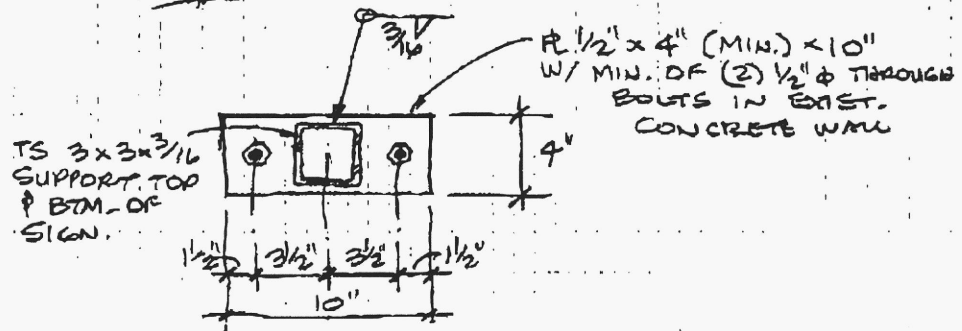 3/16
PL 1/2" x 4" (MIN.) x 10"
W/ MIN. OF (2) 1/2" φ THROUGH
BOLTS IN EXIST.
CONCRETE WALL
TS 3x3x3/16
SUPPORT TOP
& BTM. OF
SIGN.
4"
1 1/2" 3 1/2" 3 1/2" 1 1/2"
10"